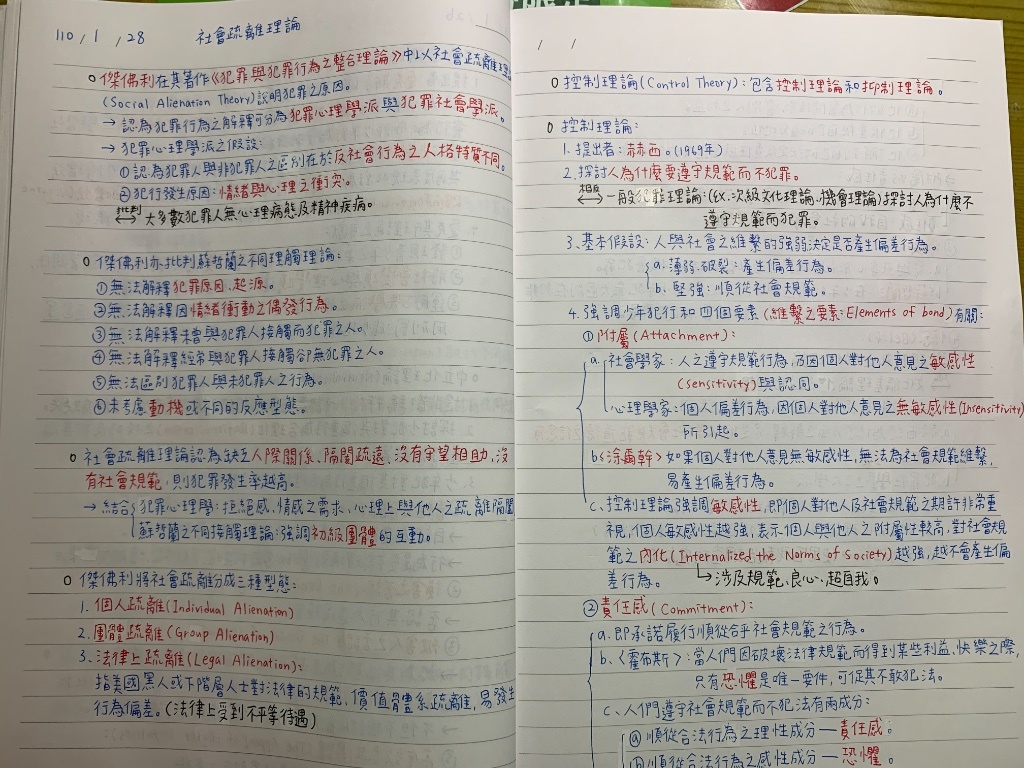 110 / 1 / 28 社會疏離理論
○ 傑佛利在其著作《犯罪與犯罪行為之整合理論》中以社會疏離理論
(Social Alienation Theory)說明犯罪之原因。
→ 認為犯罪行為之解釋可分為犯罪心理學派與犯罪社會學派。
→ 犯罪心理學派之假設:
①認為犯罪人與非犯罪人之區別在於反社會行為之人格特質不同。
②犯行發生原因:情緒與心理之衝突。
批判
⟷ 大多數犯罪人無心理病態及精神疾病。
○ 傑佛利亦批判蘇哲蘭之不同理觸理論:
①無法解釋犯罪原因、起源。
②無法解釋因情緒衝動之偶發行為。
③無法解釋未曾與犯罪人接觸而犯罪之人。
④無法解釋經常與犯罪人接觸卻無犯罪之人。
⑤無法區別犯罪人與未犯罪人之行為。
⑥未考慮動機或不同的反應型態。
○ 社會疏離理論認為缺乏人際關係、隔閡疏遠、沒有守望相助,沒
有社會規範,則犯罪發生率越高。
→ 結合 犯罪心理學:拒絕感、情感之需求、心理上與他人之疏離隔閡
蘇哲蘭之不同接觸理論:強調初級團體的互動。
○ 傑佛利將社會疏離分成三種型態:
1. 個人疏離(Individual Alienation)
2. 團體疏離(Group Alienation)
3. 法律上疏離(Legal Alienation):
指美國黑人或下階層人士對法律的規範、價值體系疏離,易發生
行為偏差。(法律上受到不平等待遇)
/ /
○ 控制理論(Control Theory):包含控制理論和抑制理論。
○ 控制理論:
1. 提出者:赫西。(1969年)
2. 探討人為什麼要遵守規範而不犯罪。
相反
⟷ 一般犯罪理論:(ex.次級文化理論、機會理論)探討人為什麼不
遵守規範而犯罪。
3. 基本假設:人與社會之維繫的強弱決定是否產生偏差行為。
a. 薄弱、破裂:產生偏差行為。
b. 堅強:順從社會規範。
4. 強調少年犯行和四個要素(維繫之要素:Elements of bond)有關:
①附屬(Attachment):
a. 社會學家:人之遵守規範行為,乃因個人對他人意見之敏感性
(sensitivity)與認同。
心理學家:個人偏差行為,因個人對他人意見之無敏感性(Insensitivity)
所引起。
b.<涂爾幹>如果個人對他人意見無敏感性,無法為社會規範維繫,
易產生偏差行為。
c. 控制理論強調敏感性,即個人對他人及社會規範之期許非常重
視,個人敏感性越強,表示個人與他人之附屬性較高,對社會規
範之內化(Internalized the Norms of Society)越強,越不會產生偏
差行為。 ↳涉及規範、良心、超自我。
②責任感(Commitment):
a. 即承諾履行順從合乎社會規範之行為。
b.〈霍布斯〉:當人們因破壞法律規範而得到某些利益、快樂之際,
只有恐懼是唯一要件,可促其不敢犯法。
c. 人們遵守社會規範而不犯法有兩成分:
ⓐ順從合法行為之理性成分—責任感。
ⓑ順從合法行為之感性成分—恐懼。